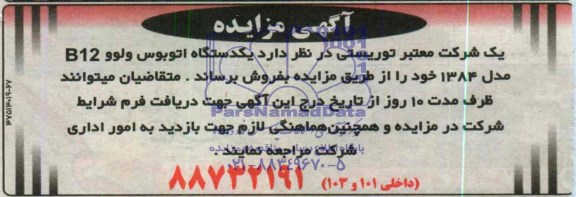 آگهی مزایده
یک شرکت معتبر توریستی در نظر دارد یکدستگاه اتوبوس ولوو B12
مدل ۱۳۸۴ خود را از طریق مزایده بفروش برساند . متقاضیان میتوانند
ظرف مدت ۱۰ روز از تاریخ درج این آگهی جهت دریافت فرم شرایط
ParsNamadData
شرکت در مزایده و همچنین هماهنگی لازم جهت بازدید به امور اداری
شرکت مراجعه نمایند .
۰۲۱-۸۸۳۴۹۶۷۰-۵
۸۸۷۳۲۱۹۱ (داخلی ۱۰۱ و ۱۰۳)